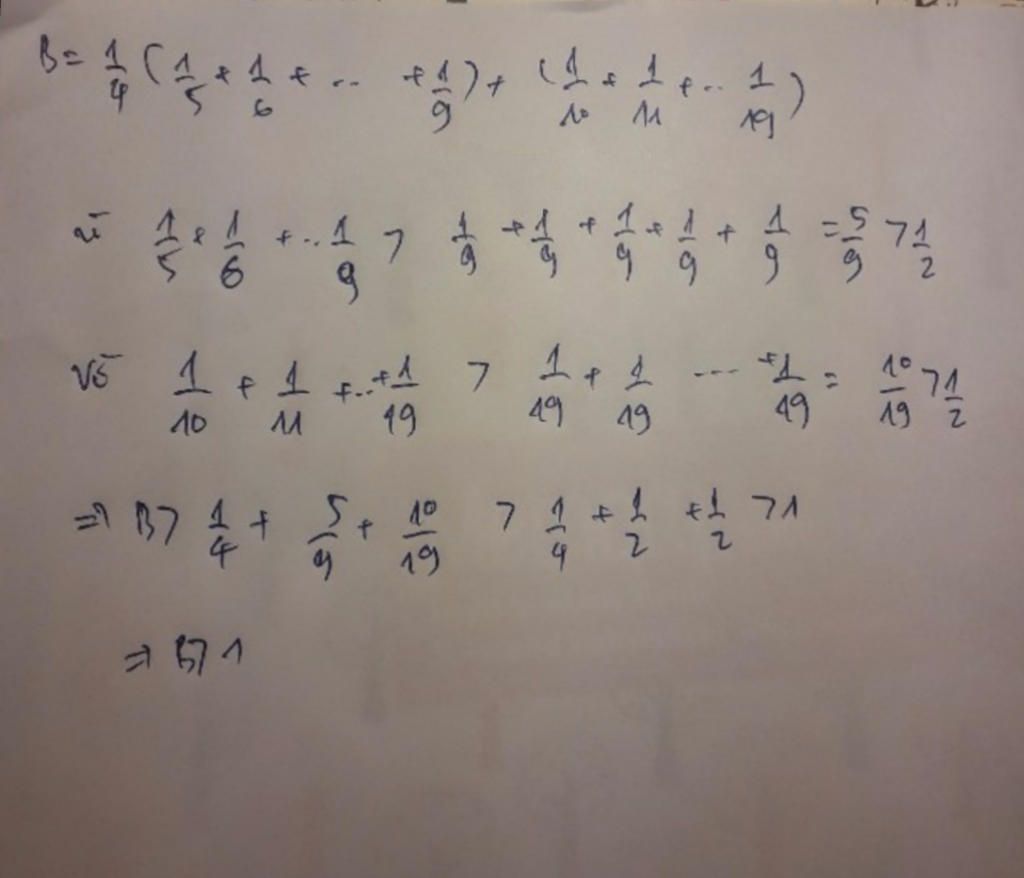 B = 1/4 (1/5 + 1/6 + .. + 1/9) + (1/10 + 1/11 + .. 1/19)
vì 1/5 + 1/6 + .. 1/9 > 1/9 + 1/9 + 1/9 + 1/9 + 1/9 = 5/9 > 1/2
Vì 1/10 + 1/11 + .. + 1/19 > 1/19 + 1/19 ... + 1/19 = 10/19 > 1/2
=> B > 1/4 + 5/9 + 10/19 > 1/4 + 1/2 + 1/2 > 1
=> B > 1